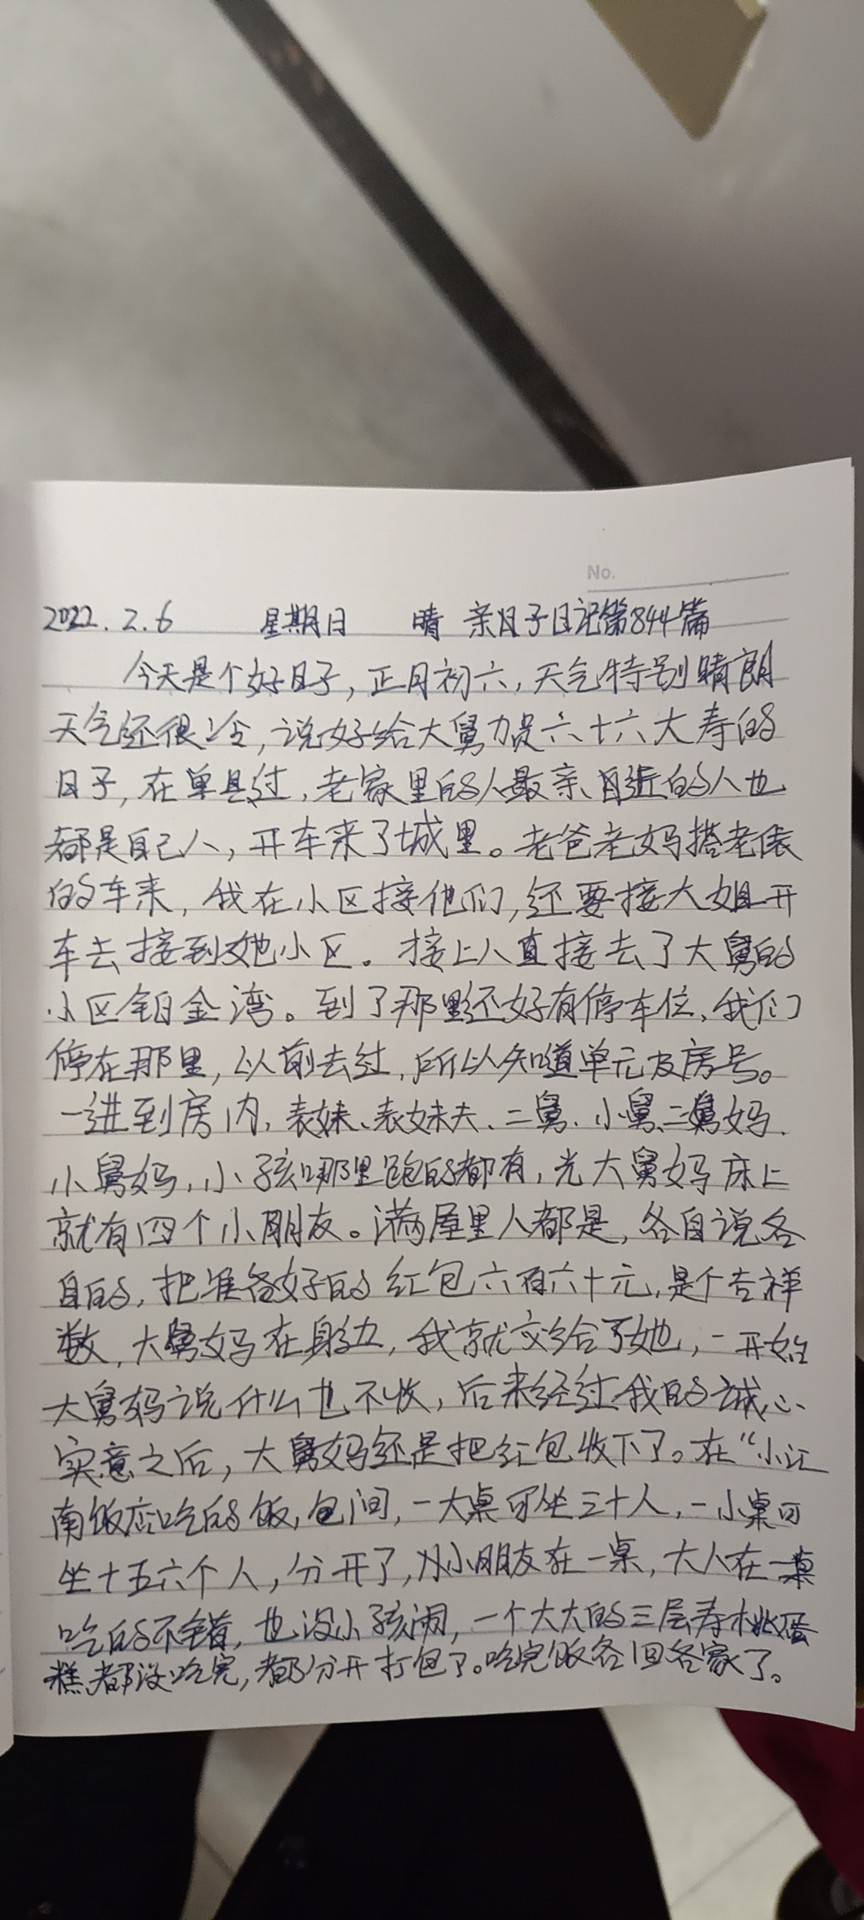 No.
2022.2.6 星期日 晴 亲日子日记第844篇
今天是个好日子，正月初六，天气特别晴朗
天气还很冷，说好给大舅办是六十六大寿的
日子，在单县过，老家里的人最亲自近的人也
都是自己人，开车来了城里。老爸老妈搭老表
的车来，我在小区接他们，还要接大姐开
车去接到她小区。接上人直接去了大舅的
小区铂金湾。到了那里还好有停车位，我们
停在那里，以前去过，所以知道单元及房号。
一进到房内，表妹、表妹夫、二舅、小舅、二舅妈、
小舅妈，小孩哪里跑的都有，光大舅妈床上
就有四个小朋友。满屋里人都是，各自说各
自的，把准备好的红包六百六十元，是个吉祥
数，大舅妈在身边，我就交给了她，一开始
大舅妈说什么也不收，后来经过我的诚心
实意之后，大舅妈还是把红包收下了。在“小江
南饭店吃的饭，包间，一大桌可坐三十人，一小桌可
坐十五六个人，分开了，小朋友在一桌，大人在一桌
吃的不错，也没小孩闹，一个大大的三层寿桃蛋
糕都没吃完，都分开打包了。吃完饭各回各家了。